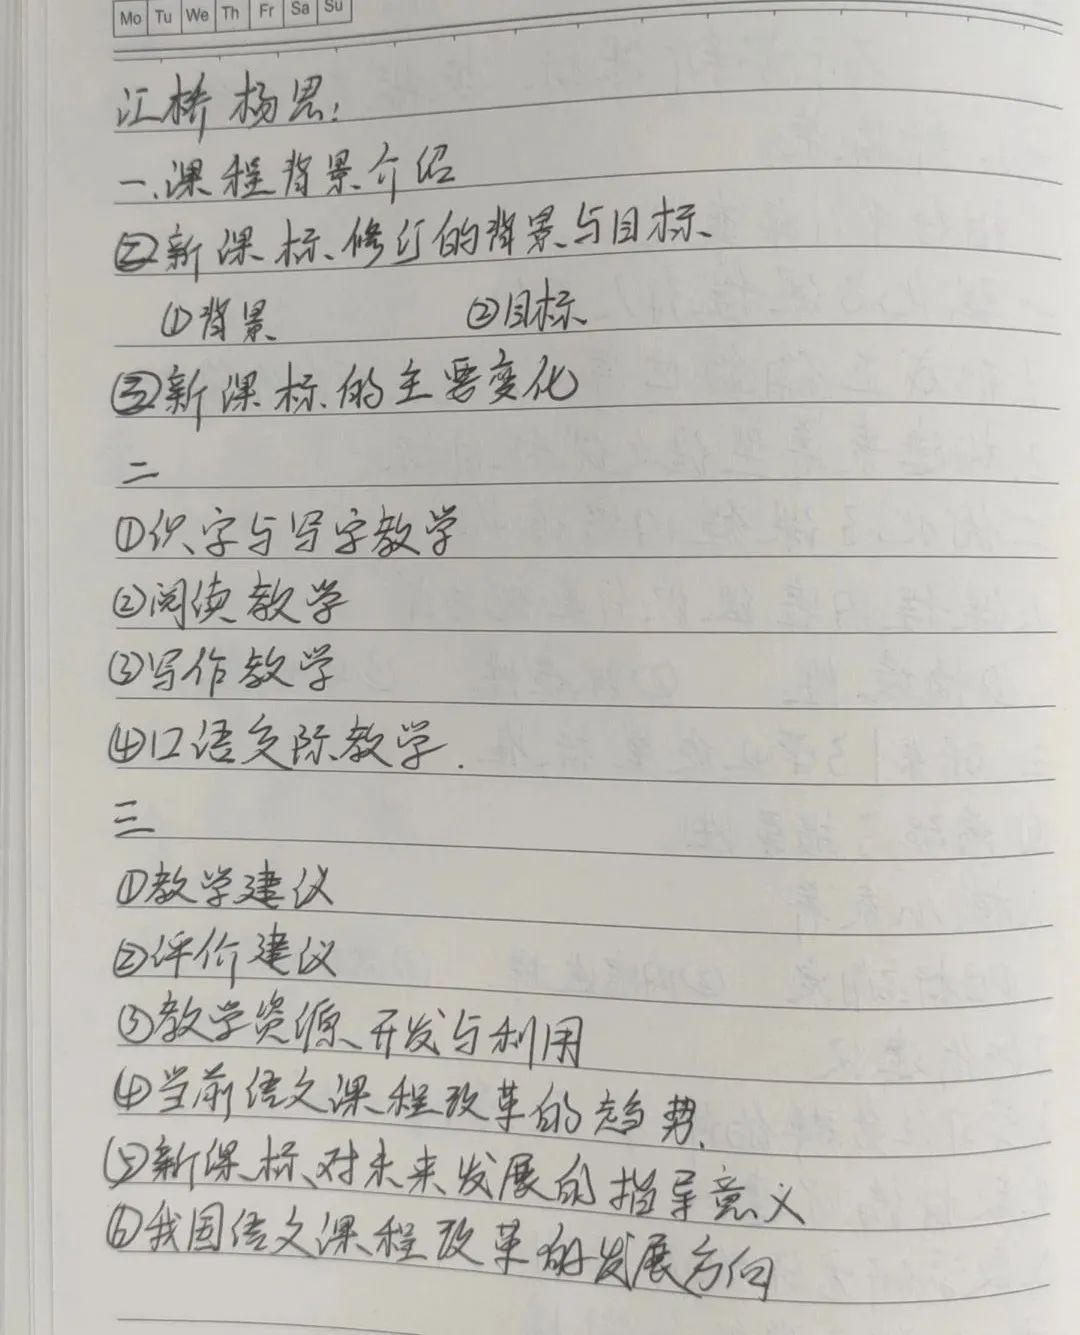 Mo Tu We Th Fr Sa Su
江桥杨思:
一.课程背景介绍
②新课标修订的背景与目标
①背景 ②目标
③新课标的主要变化
二
①识字与写字教学
②阅读教学
③写作教学
④口语交际教学.
三
①教学建议
②评价建议
③教学资源开发与利用
④当前语文课程改革的趋势.
⑤新课标对未来发展的指导意义
⑥我国语文课程改革的发展方向